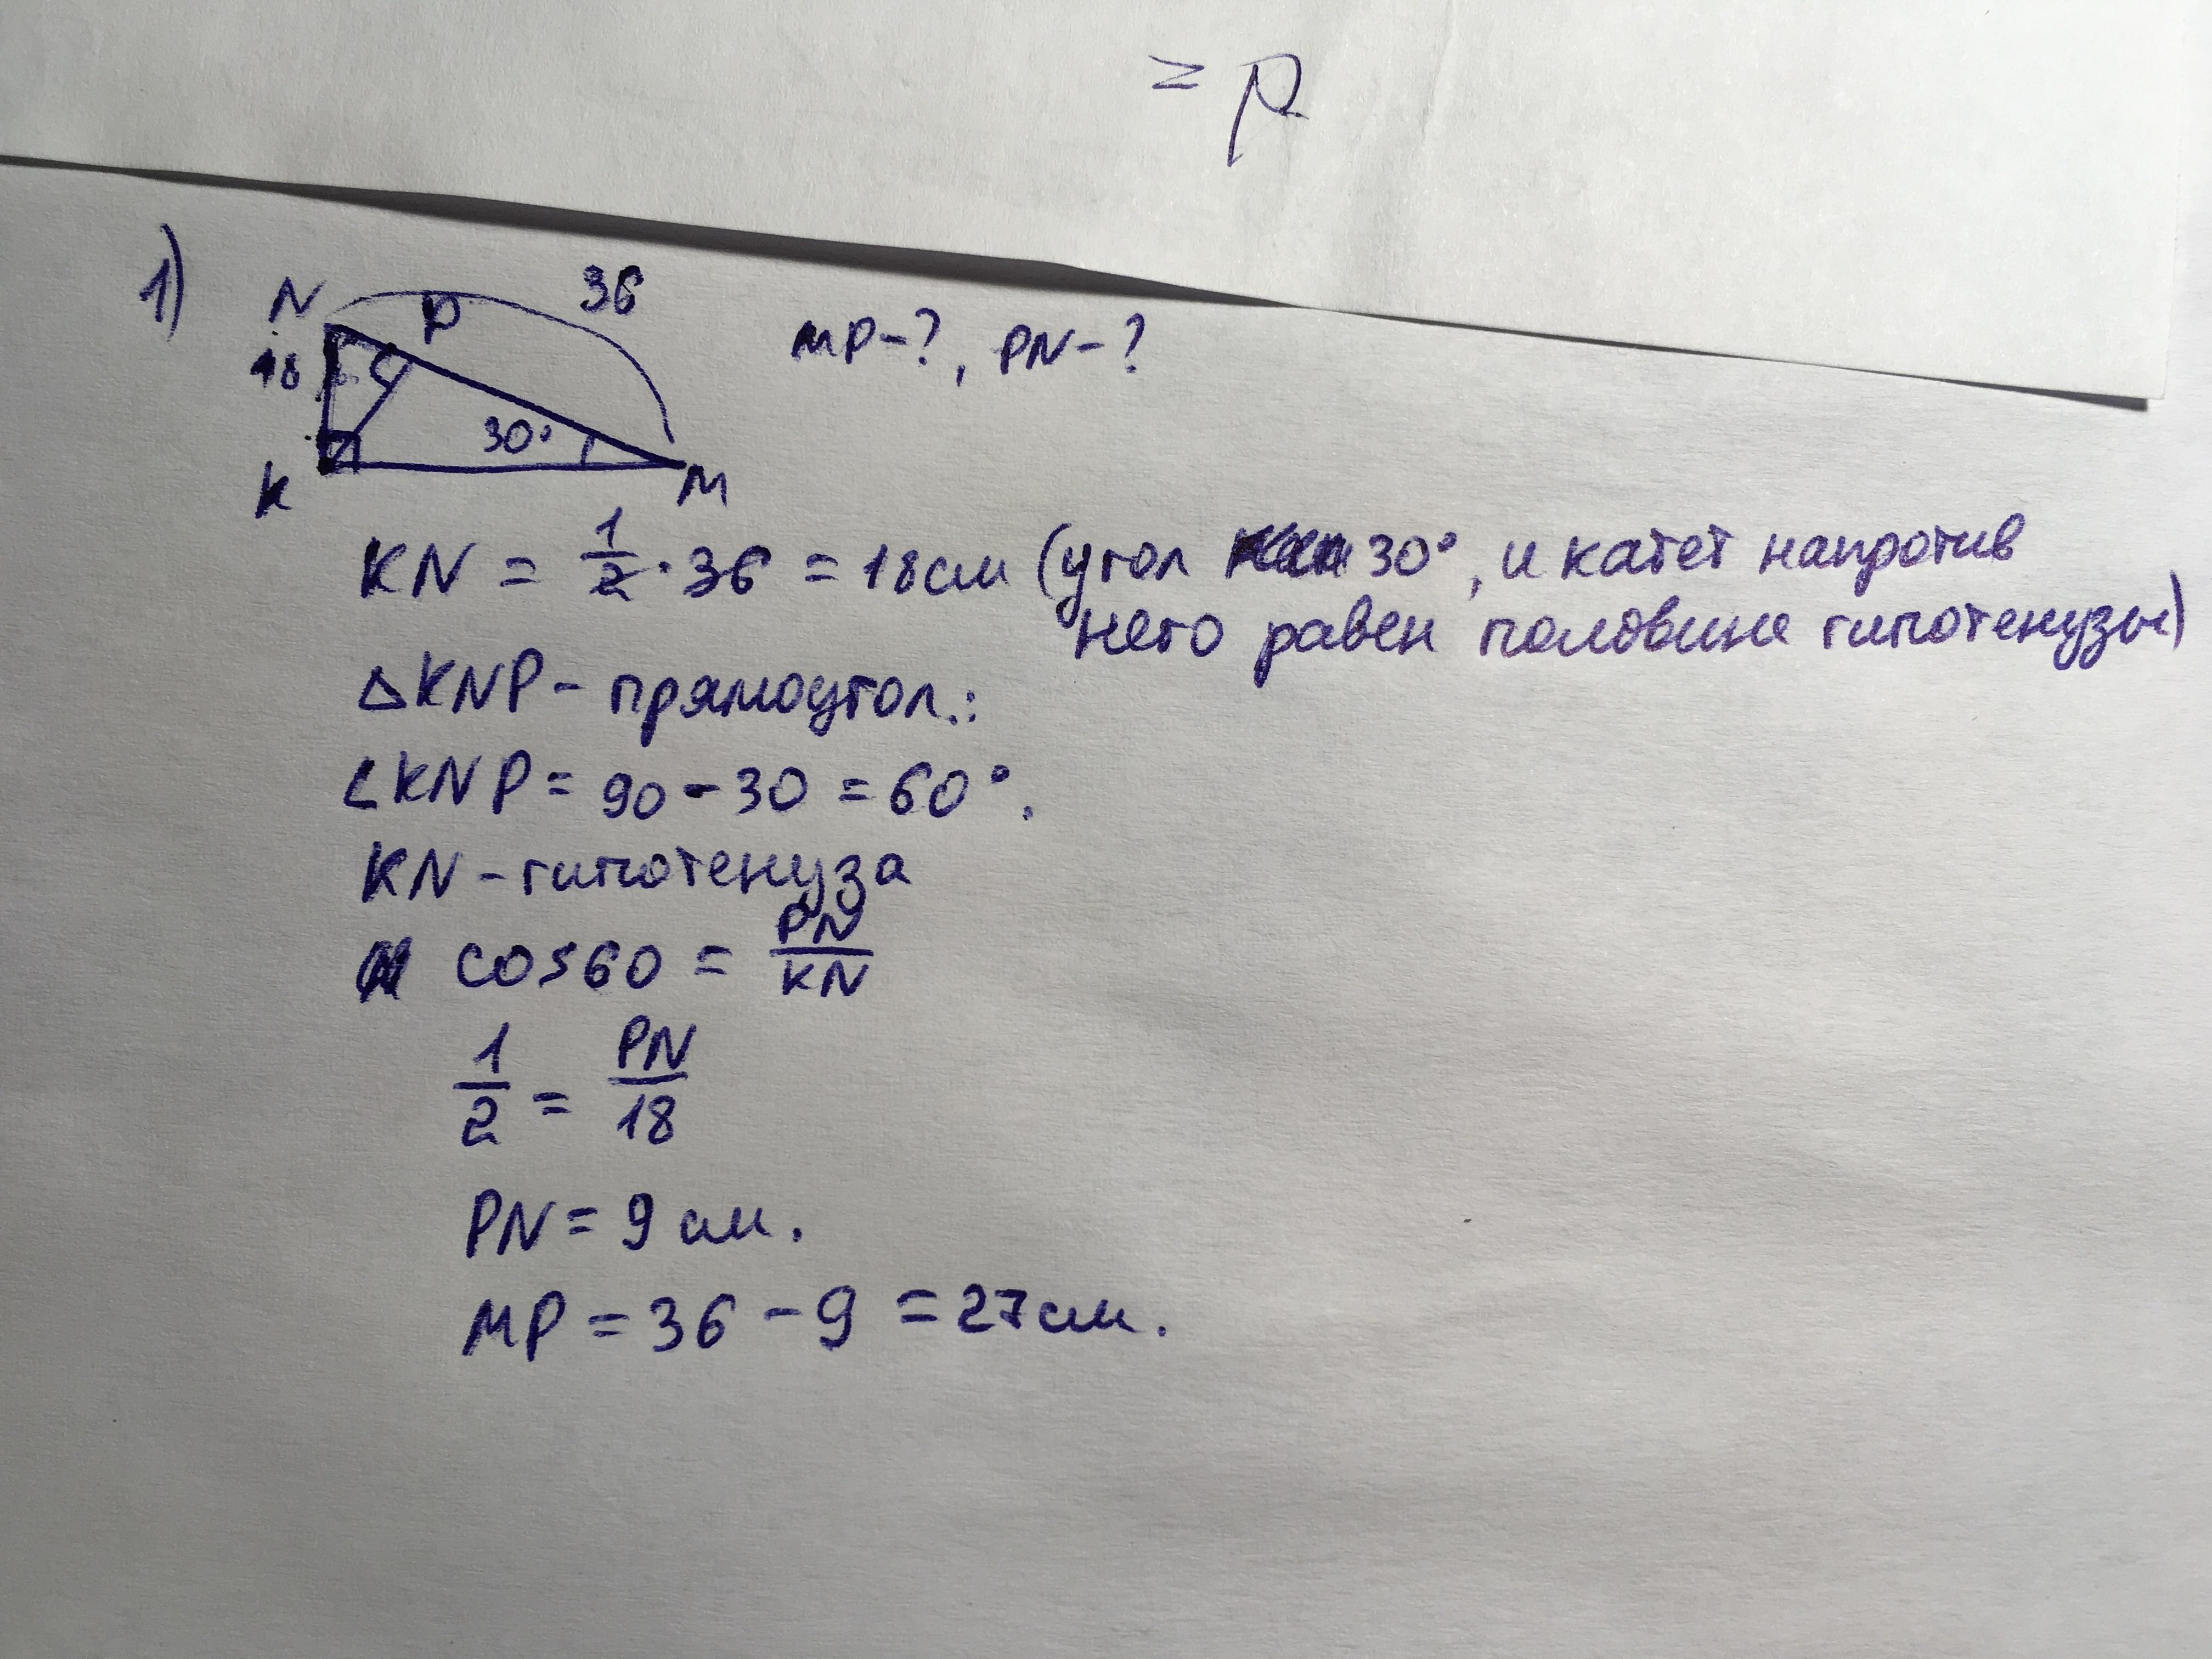 = р
1)
N P 36
18
30°
K M
MP-?, PN-?
KN = 1/2 · 36 = 18см (угол 30°, и катет напротив
него равен половине гипотенузы)
△KNP - прямоугол.:
∠KNP = 90 - 30 = 60°.
KN - гипотенуза
cos60 = PN/KN
1/2 = PN/18
PN = 9 см.
MP = 36 - 9 = 27см.